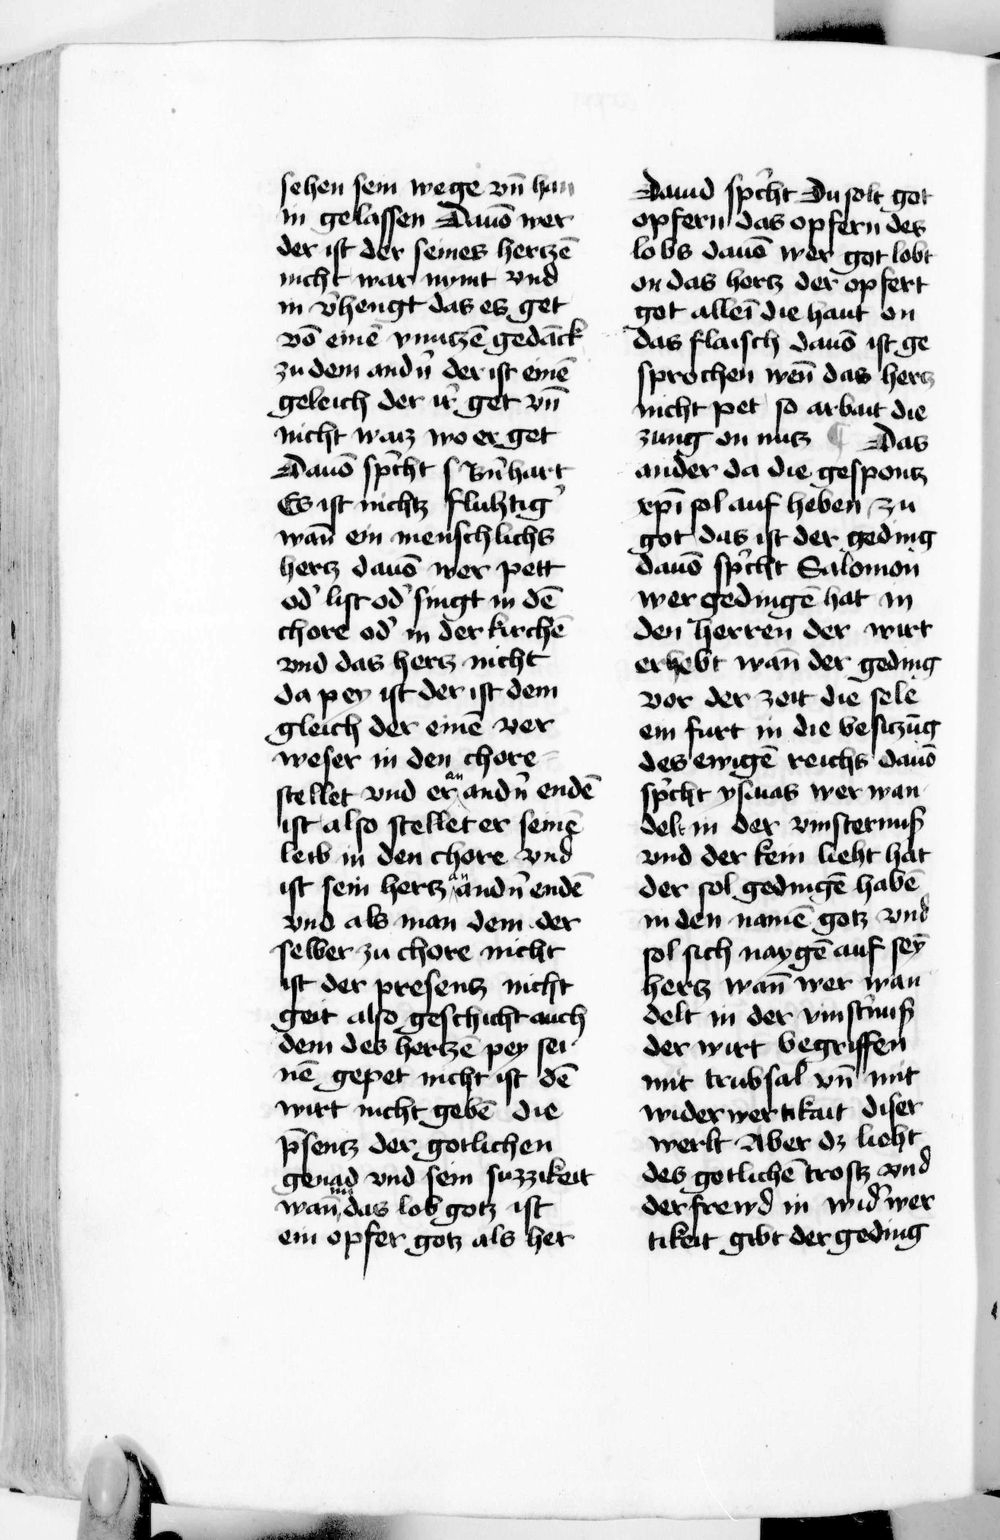 sehen sein wege vn̄ han
in gelassen Dauō wer
der ist der seines hertzē
nicht war nymt vnd
in v̉hengt das es get
vō einē vnnutzē gedāck
zu dem andn̉ der ist einē
geleich der ir̉ get vn̄
nicht waiz wo er get
Dauō sp̉cht s Bn̉hart
Es ist nichtz fluhtig̉
wān ein menschlichs
hertz dauō wer pett
od̉ list od̉ singt in dē
chore od̉ in der kirchē
vnd das hertz nicht
da pey ist der ist dem
gleich der einē ver
weser in den chore
stellet vnd er an andn̉ endē
ist also stellet er seinē
leib in den chore vnd
ist sein hertz an andn̉ endē
vnd als man dem der
selber zu chore nicht
ist der presentz nicht
geit also geschicht auch
dem des hertzē pey sei
nē gepet nicht ist dē
wirt nicht gebē die
p̄sentz der gotlichen
genad vnd sein suzzikeit
wān das lob gotz ist
ein opfer gotz als her
Dauid sp̉cht Du solt got
opfern das opfern des
lobs dauō wer got lobt
on das hertz der opfert
got allei̅ die haut on
das flaisch dauō ist ge
sprochen wen̄ das hertz
nicht pet so arbait die
zung on nutz ¶ Das
ander da die gespontz
xp̄i sol auf heben zu
got das ist der geding
dauō sp̉cht Salomon
wer gedingē hat in
den herren der wirt
erhebt wān der geding
vor der zeit die sele
ein furt in die besiczūg
des ewigē reichs dauō
sp̉cht ysaias wer wan
delt in der vinsternuß
vnd der kein lieht hat
der sol gedingē habē
in den namē gotz vnd
sol sich naygē auf seȳ
hertz wān wer wan
delt in der vinst̉nuß
der wirt begriffen
mit trubsal vn̄ mit
widerwertikait diser
werlt Aber dz lieht
des gotlichē trostz vnd
der frewd in wid̉wer
tikeit gibt der geding